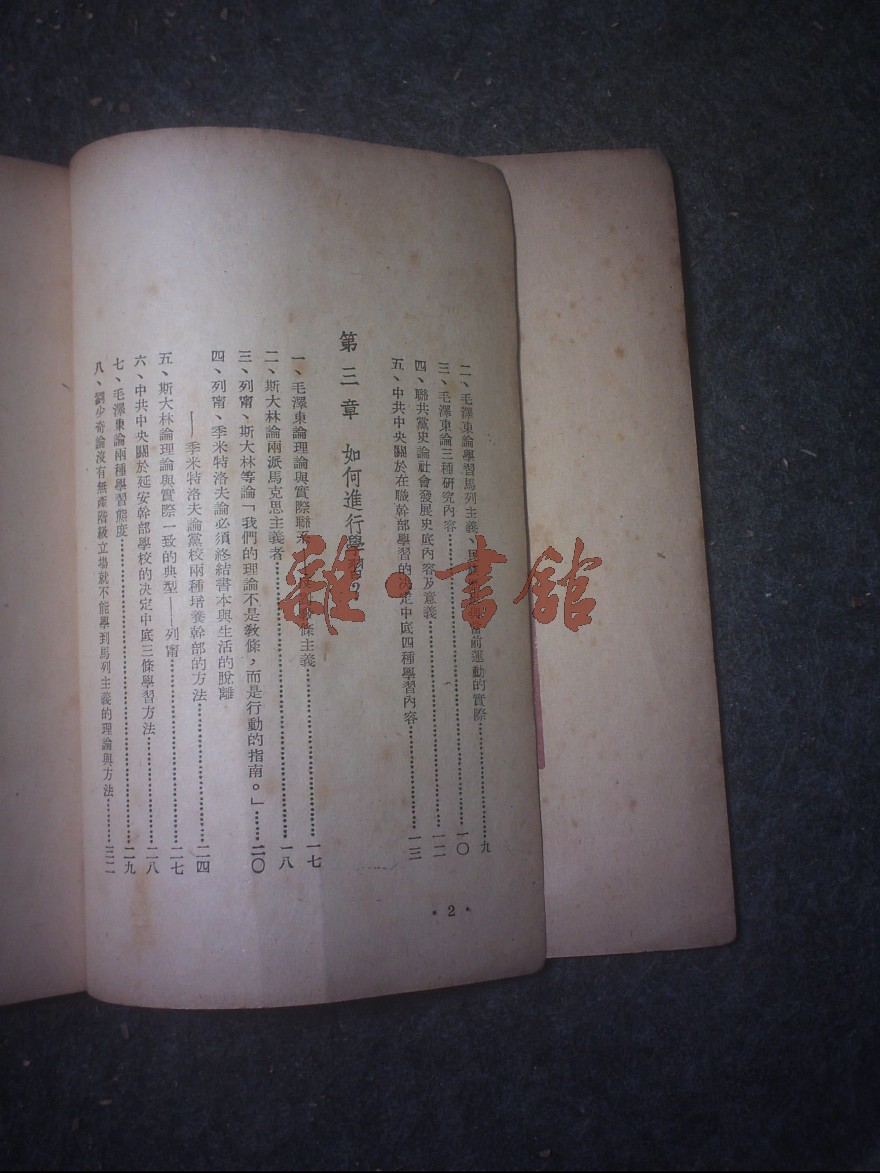 二、毛澤東論學習馬列主義、民 當前運動的實際……九
三、毛澤東論三種研究內容……一〇
四、聯共黨史論社會發展史底內容及意義……一二
五、中共中央關於在職幹部學習的決定中底四種學習內容……一三
第三章 如何進行學習?
一、毛澤東論理論與實際聯系 教條主義……一七
二、斯大林論兩派馬克思主義者……一八
三、列甯、斯大林等論「我們的理論不是教條，而是行動的指南。」……二〇
四、列甯、季米特洛夫論必須終結書本與生活的脫離
——季米特洛夫論黨校兩種培養幹部的方法……二四
五、斯大林論理論與實際一致的典型——列甯……二七
六、中共中央關於延安幹部學校的決定中底三條學習方法……二八
七、毛澤東論兩種學習態度……二九
八、劉少奇論沒有無產階級立場就不能學到馬列主義的理論與方法……三二
• 2 •
雜·書館